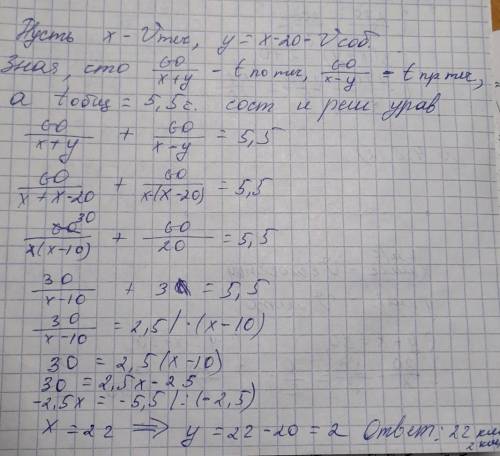 Пусть x - Vтеч, y = x-20 - Vсоб.
Зная, сто 60/(x+y) - t по теч, 60/(x-y) = t пр теч,
а t общ = 5,5 г. сост и реш урав
60/(x+y) + 60/(x-y) = 5,5
60/(x+x-20) + 60/(x-(x-20)) = 5,5
60 30/(x(x-10)) + 60/20 = 5,5
30/(x-10) + 3 = 5,5
30/(x-10) = 2,5 | ·(x-10)
30 = 2,5(x-10)
30 = 2,5x - 25
-2,5x = -5,5 |:(-2,5)
x = 22 ⟹ y = 22-20 = 2 Ответ: 22 км
2 км